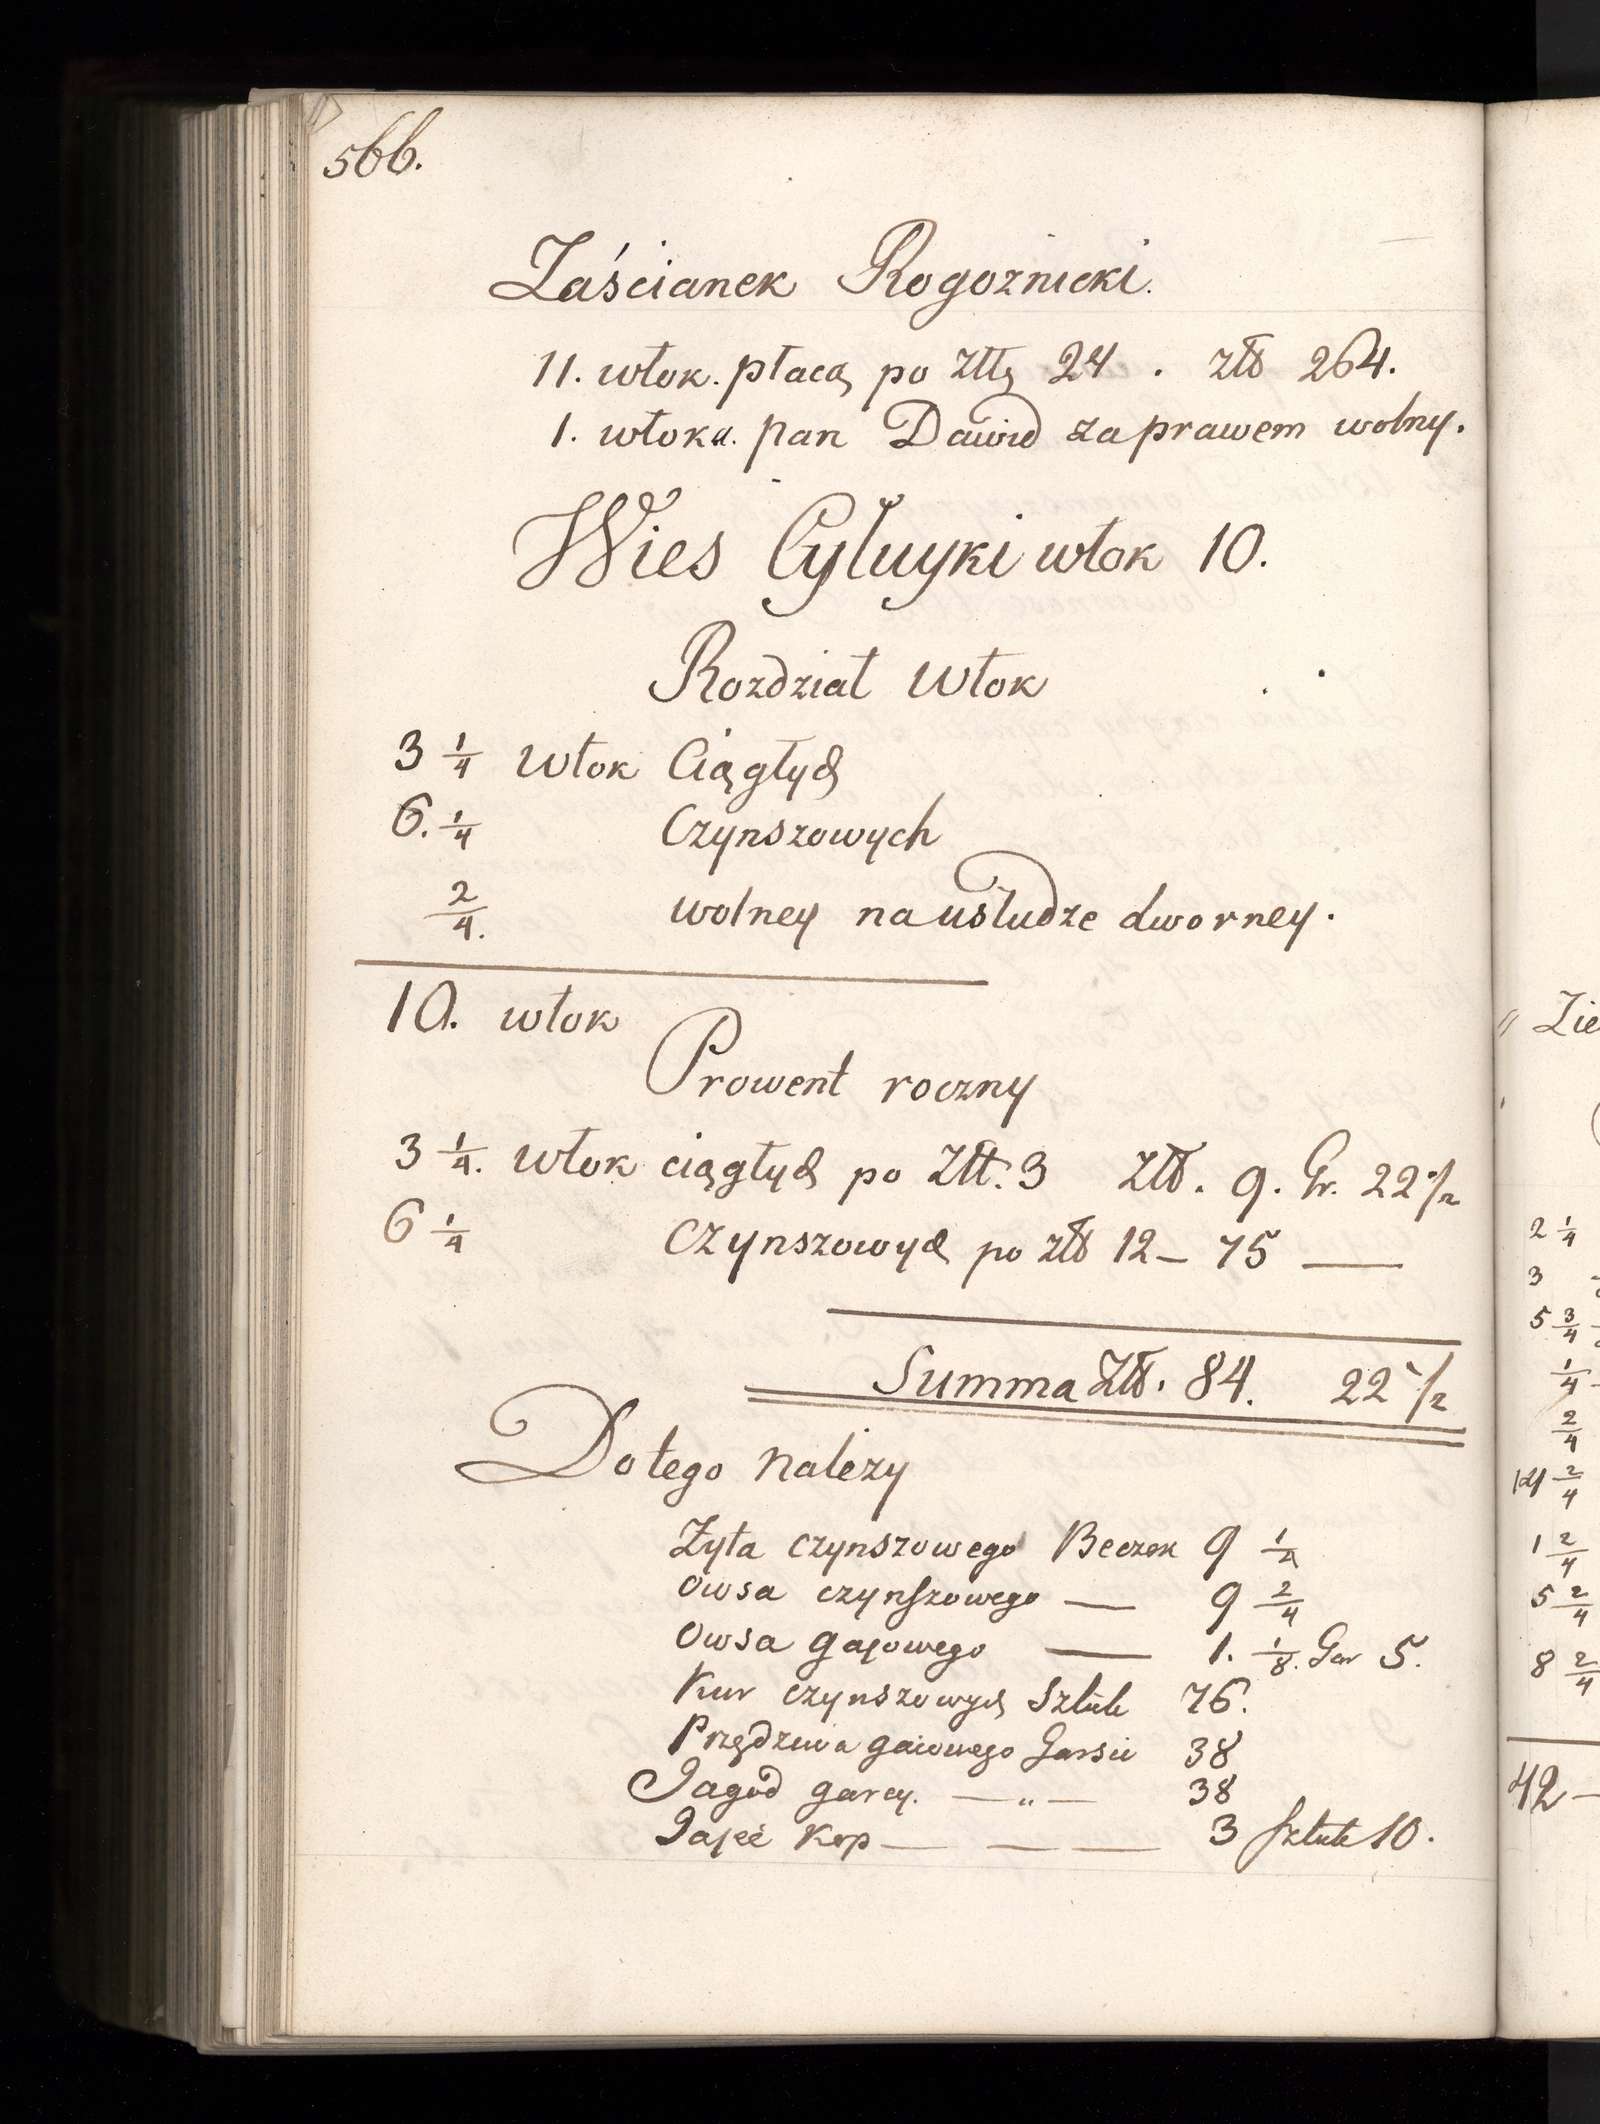 566.
Zaścianek Rogoznicki.
11. włok. płacą po Złł 24 . złł 264.
1. włoka. pan Dawid za prawem wolny.
Wies Cyluyki włok 10.
Rozdział Włok
3 1/4 Włok Ciągłych
6. 1/4 Czynszowych
2/4. wolney na usłudze dworney.
10. włok
Prowent roczny
3 1/4. Włok ciągłych po Złł. 3 Złł. 9. Gr. 22 1/2
6 1/4 Czynszowych po złł 12 — 75 —
Summa Złł. 84. 22 1/2
Do tego należy
Żyta czynszowego Beczek 9 1/4
Owsa czynszowego — 9 2/4
Owsa gajowego — 1. 1/8. Gar 5.
Kur czynszowych Sztuk 76.
Przędziwa gaiowego Garści 38
Jagód garcy. — „ — 38
Jajeć Kop — — — 3 Sztuk 10.
„ Zie
2 1/4
3
5 3/4
1/4
2/4
12 2/4
1 2/4
5 2/4
8 2/4
42 —